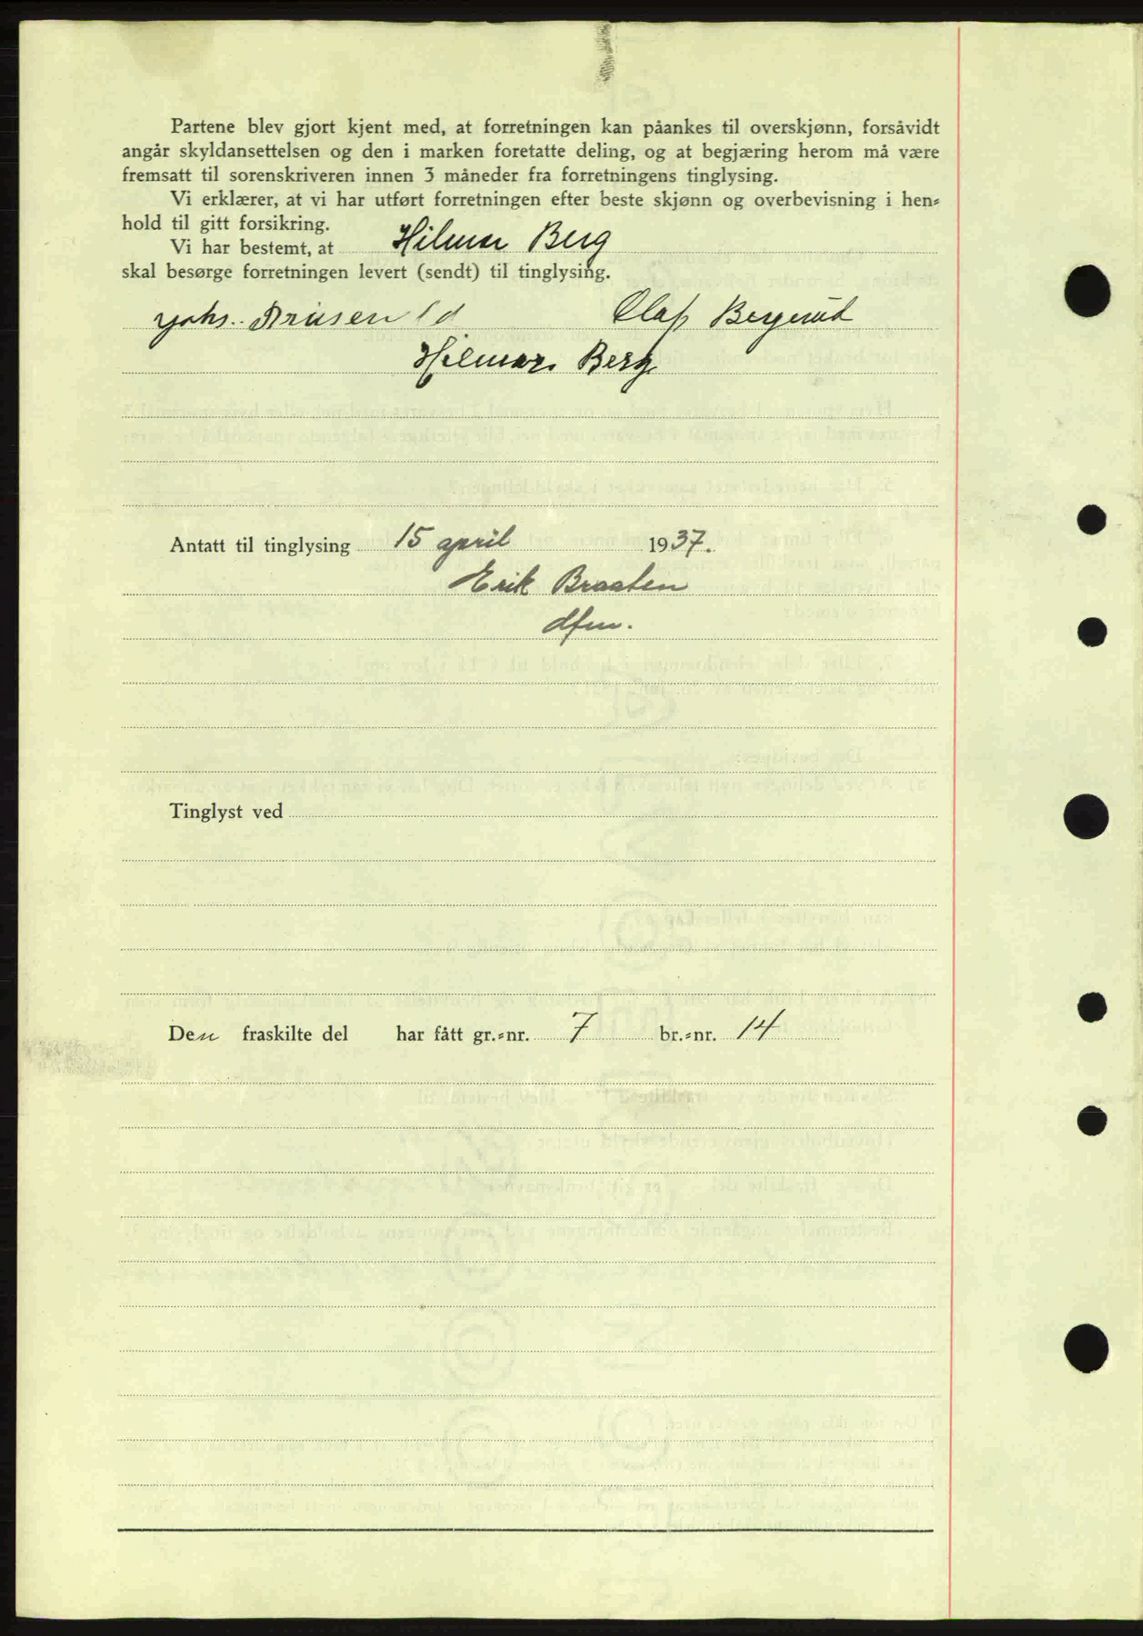 Partene blev gjort kjent med, at forretningen kan påankes til overskjønn, forsåvidt
angår skyldansettelsen og den i marken foretatte deling, og at begjæring herom må være
fremsatt til sorenskriveren innen 3 måneder fra forretningens tinglysing.
Vi erklærer, at vi har utført forretningen efter beste skjønn og overbevisning i hen-
hold til gitt forsikring.
Vi har bestemt, at Hilmar Berg
skal besørge forretningen levert (sendt) til tinglysing.
Johs. Olaf Bergerud
Hilmar Berg
Antatt til tinglysing 15 april 1937.
Erik Braaten
dfm.
Tinglyst ved
Den fraskilte del har fått gr.-nr. 7 br.-nr. 14